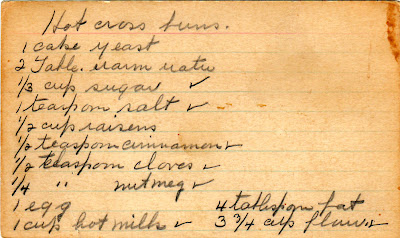 Hot cross buns.
1 cake yeast
2 Table. warm water
1/3 cup sugar ✓
1 teaspoon salt ✓
1/2 cup raisens
1/2 teaspoon cinnamon ✓
1/2 teaspoon cloves ✓
1/4 " nutmeg ✓
1 egg 4 tablespoon fat
1 cup hot milk ✓ 3 3/4 cup flour ✓